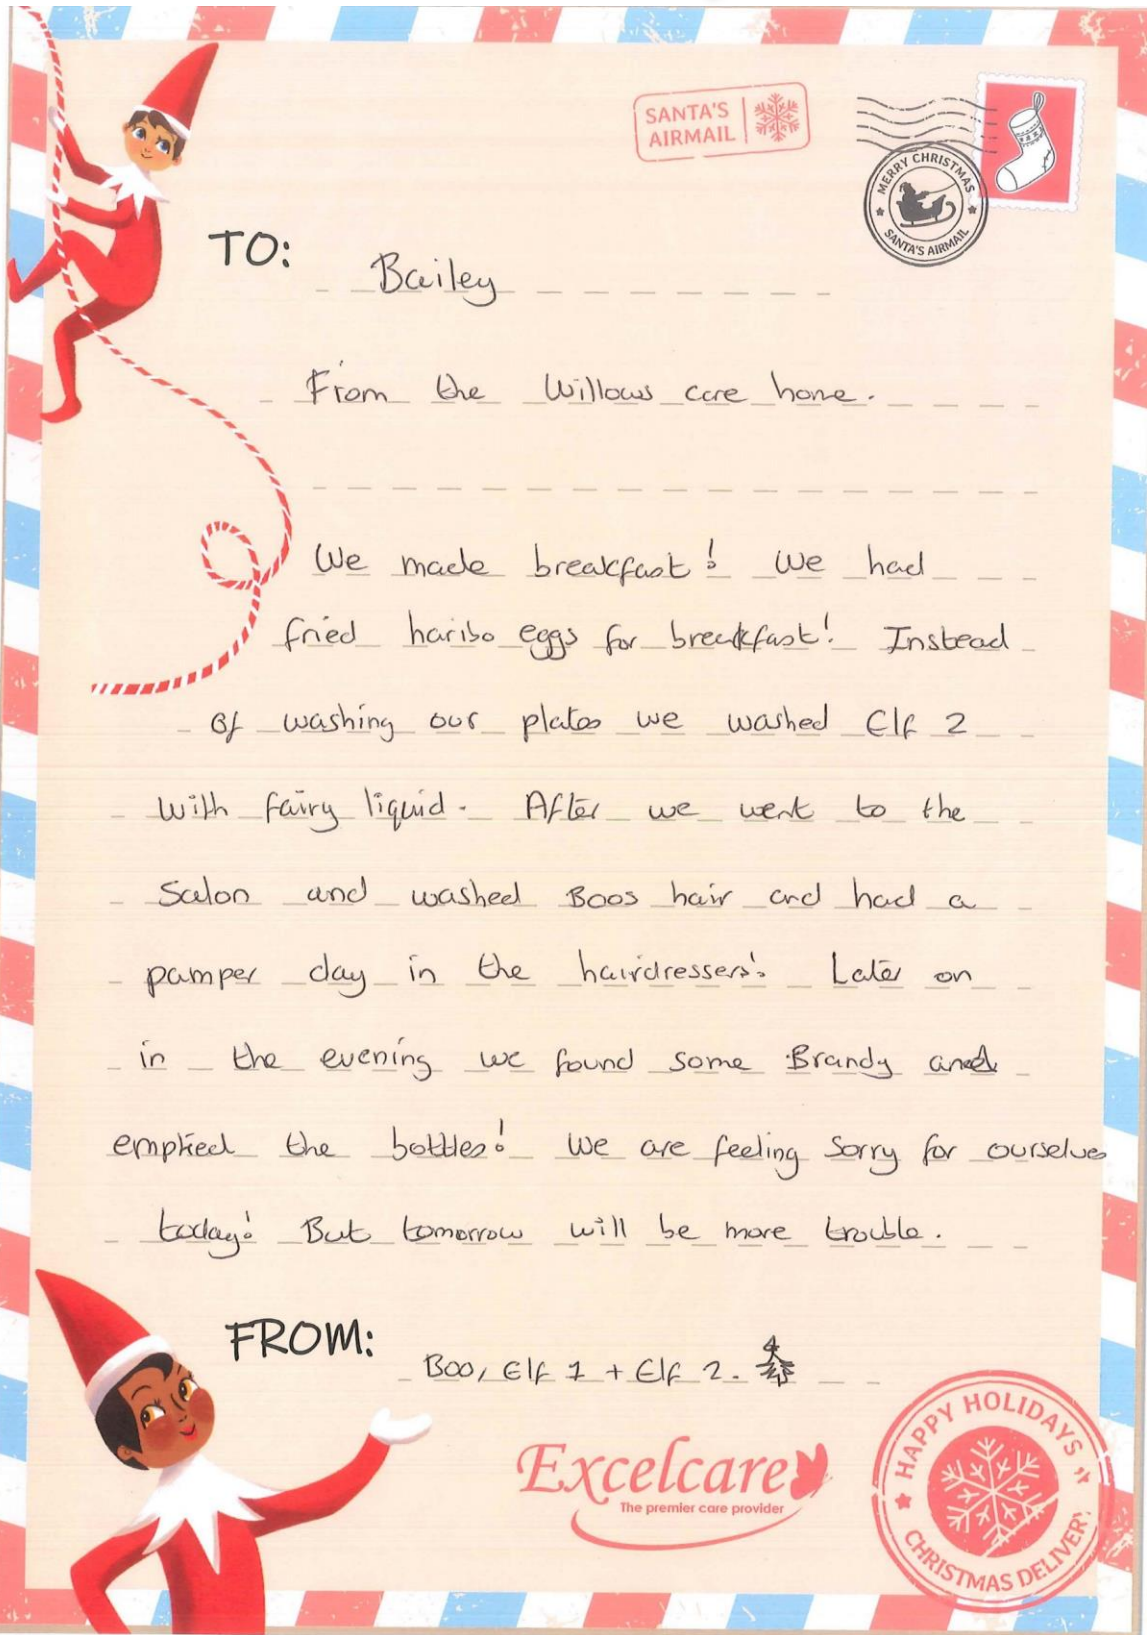 SANTA'S
AIRMAIL
MERRY CHRISTMAS
SANTA'S AIRMAIL
TO:
Bailey
From the Willows care home.
We made breakfast! We had
fried haribo eggs for breakfast! Instead
Of washing our plates we washed Elf 2
with fairy liquid. After we went to the
Salon and washed Boos hair and had a
pamper day in the hairdressers! Later on
in the evening we found some Brandy and
emptied the bottles! We are feeling Sorry for ourselves
today! But tomorrow will be more trouble.
FROM:
Boo, Elf 1 + Elf 2.
Excelcare
The premier care provider
HAPPY HOLIDAYS
CHRISTMAS DELIVERY